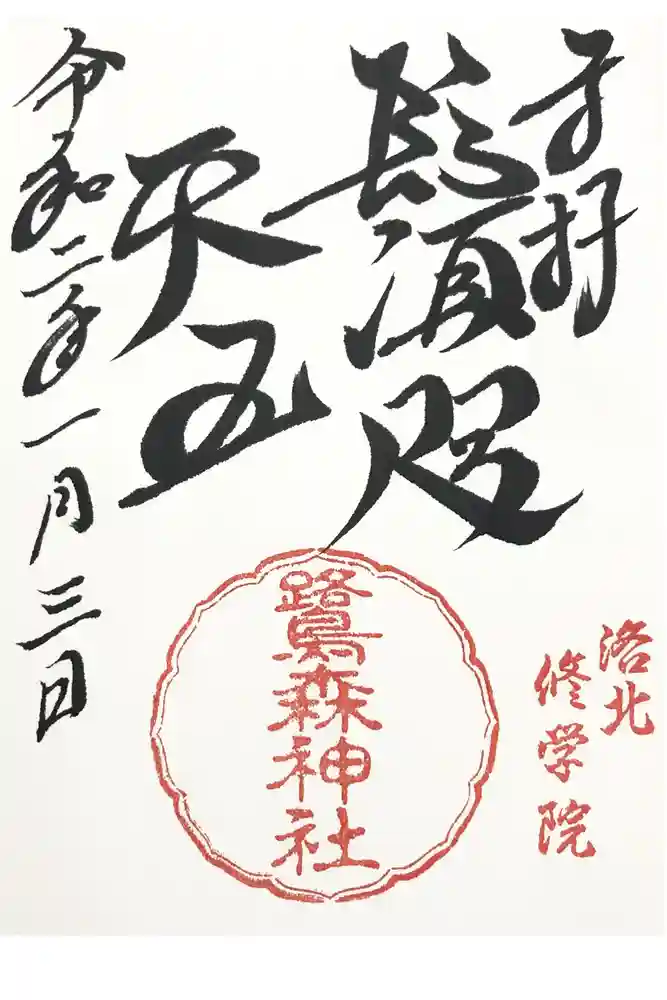 奉拝
鬚咫
天王
令和二年一月三日
鷺森神社
洛北
修学院